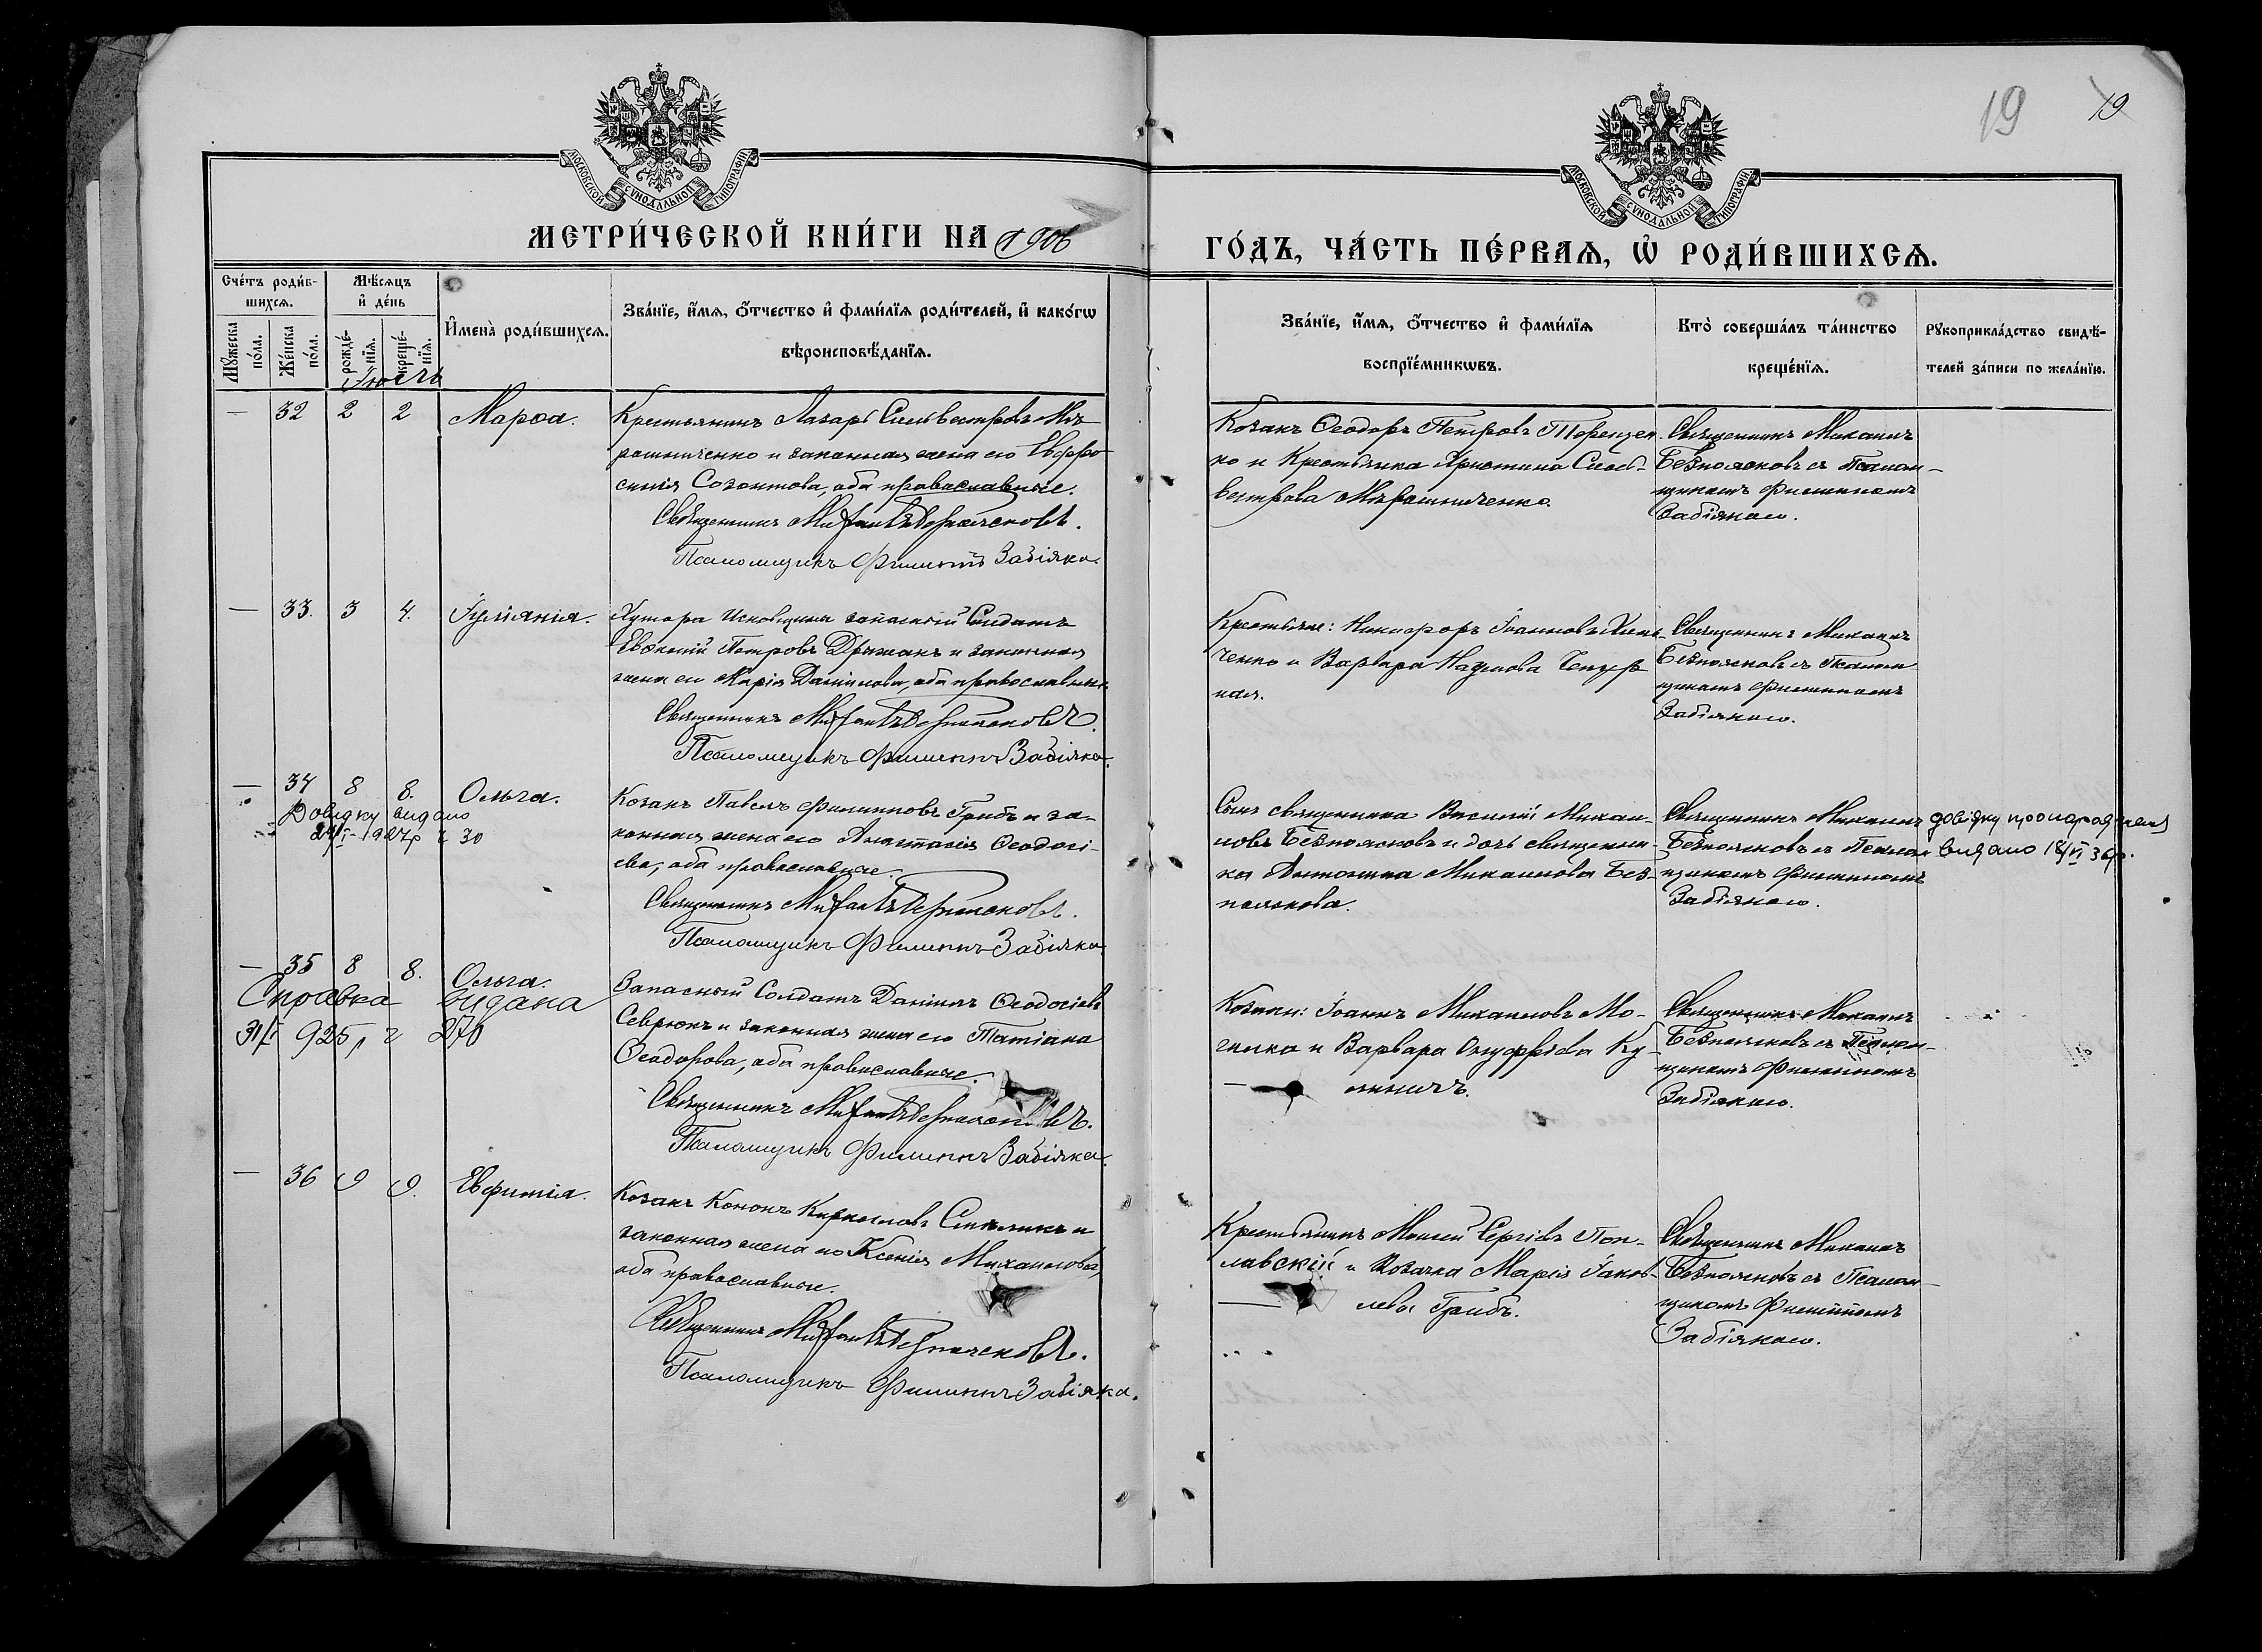 19 19
МОСКОВСКОЙ СѴНОДАЛЬНОЙ ТИПОГРАФІИ
МОСКОВСКОЙ СѴНОДАЛЬНОЙ ТИПОГРАФІИ
МЕТРИ́ЧЕСКОЙ КНИ́ГИ НА 1906
ГО́ДЪ, ЧА́СТЬ ПЕ́РВАѦ, Ѡ҆ РОДИ́ВШИХСѦ.
Сче́тъ роди́в-
шихсѧ.
Мѣ́сѧцъ
и҆ де́нь
Мꙋ́жеска
по́ла.
Же́нска
по́ла.
рожде́-
нїѧ.
креще́-
нїѧ.
И҆мена̀ роди́вшихсѧ.
Зва́нїе, и҆́мѧ, ѻ҆́тчество и҆ фами́лїѧ роди́телей, и҆ како́гѡ
вѣроисповѣ́данїѧ.
Зва́нїе, и҆́мѧ, ѻ҆́тчество и҆ фами́лїѧ
воспрїе́мникѡвъ.
Кто̀ соверша́лъ та́инство
креще́нїѧ.
Рꙋкоприкла́дство свидѣ́-
телей за́писи по жела́нїю.
Іюль
— 32 2 2 Марѳа.
Крестьянинъ Лазарь Сильвестровъ Мѣ-
рошниченко и законная жена его Евфро-
синія Созонтова, оба православные.
Священникъ Михаилъ Безпоясковъ.
Псаломщикъ Филиппъ Забіяка.
Козакъ Ѳеодоръ Петровъ Терещен-
ко и Крестьянка Христина Силь-
вестрова Мѣрошниченко.
Священникъ Михаилъ
Безпоясковъ съ Псалом-
щикомъ Филиппомъ
Забіякою.
— 33. 3 4. Іуліанія.
Хутора запасный Солдатъ
Евѳимій Петровъ Дрыжакъ и законная
жена его Марія Даніилова, оба православные.
Священникъ Михаилъ Безпоясковъ.
Псаломщикъ Филиппъ Забіяка.
Крестьяне: Никифоръ Іоанновъ
ченко и Варвара
ная.
Священникъ Михаилъ
Безпоясковъ съ Псалом-
щикомъ Филиппомъ
Забіякою.
— 34 8 8. Ольга.
Довідку видано
1927р ч 30
Козакъ Павелъ Филипповъ Грибъ и за-
конная жена его Анастасія Ѳеодосі-
ева, оба православные.
Священникъ Михаилъ Безпоясковъ.
Псаломщикъ Филиппъ Забіяка.
Сынъ священника Василій Михаи-
ловъ Безпоясковъ и дочь священни-
ка Антонина Михаилова Без-
пояскова.
Священникъ Михаилъ
Безпоясковъ съ Псалом-
щикомъ Филиппомъ
Забіякою.
довідку про народження
видано 18/VI 36р.
— 35 8 8. Ольга.
Справка видана
31/ 925р ч 270
Запасный Солдатъ Даніилъ Ѳеодосіевъ
Севрюкъ и законная жена его Татіана
Ѳеодорова, оба православные.
Священникъ Михаилъ Безпоясковъ.
Псаломщикъ Филиппъ Забіяка.
Козаки: Іоаннъ Михаиловъ Мо-
гилка и Варвара Онуфріева Ку-
Священникъ Михаилъ
Безпоясковъ съ Псалом-
щикомъ Филиппомъ
Забіякою.
— 36 9 9. Евфимія.
Козакъ Кононъ Кирилловъ и
законная жена его Ксенія Михаилова,
оба православные.
Священникъ Михаилъ Безпоясковъ.
Псаломщикъ Филиппъ Забіяка.
Крестьянинъ Моисей Сергіевъ Поп-
лавскій и Козачка Марія Іаков-
лева Грибъ.
Священникъ Михаилъ
Безпоясковъ съ Псалом-
щикомъ Филиппомъ
Забіякою.